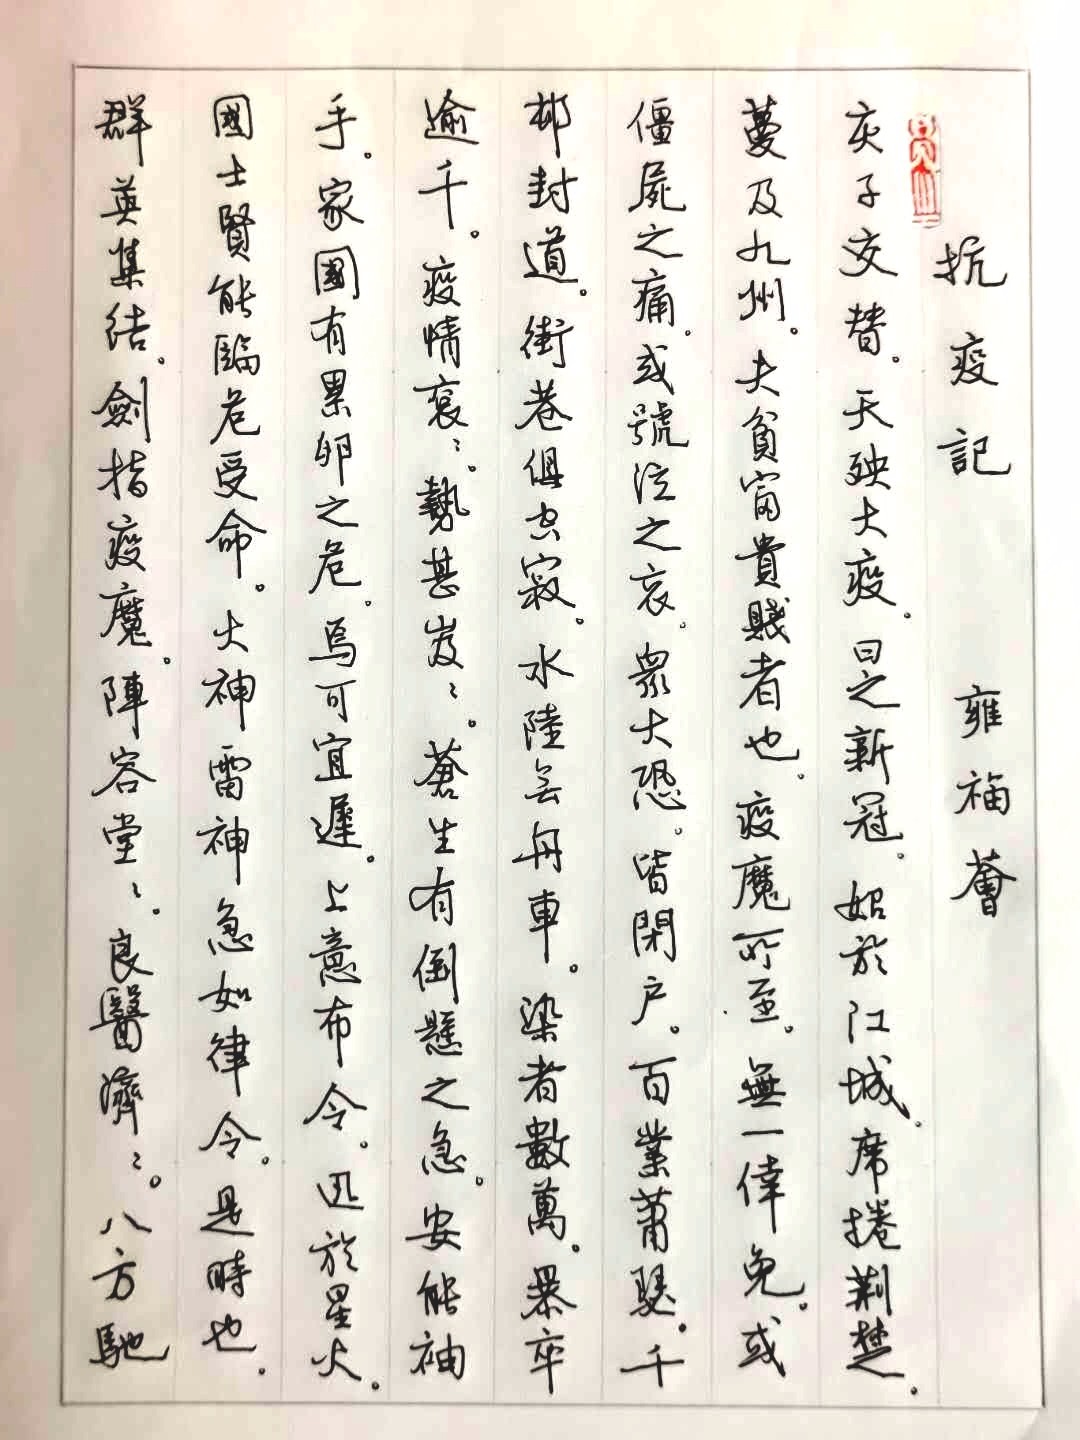 抗疫記 雍福薈
灰子交替。天殃大疫。曰之新冠。始於江城。席捲荆楚。
蔓及九州。夫貧富貴賤者也。疫魔所至。無一倖免。或
僵屍之痛。或號泣之哀。衆大恐。皆閉户。百業蕭瑟。千
邨封道。街巷俱空寂。水陸無舟車。染者數萬。暴卒
逾千。疫情衮〻。勢甚岌〻。蒼生有倒懸之急。安能袖
手。家國有累卵之危。焉可宜遲。上意布令。迅於星火。
國士賢能臨危受命。火神雷神急如律令。是時也。
群英集结。劍指疫魔。陣容堂〻。良醫濟〻。八方馳